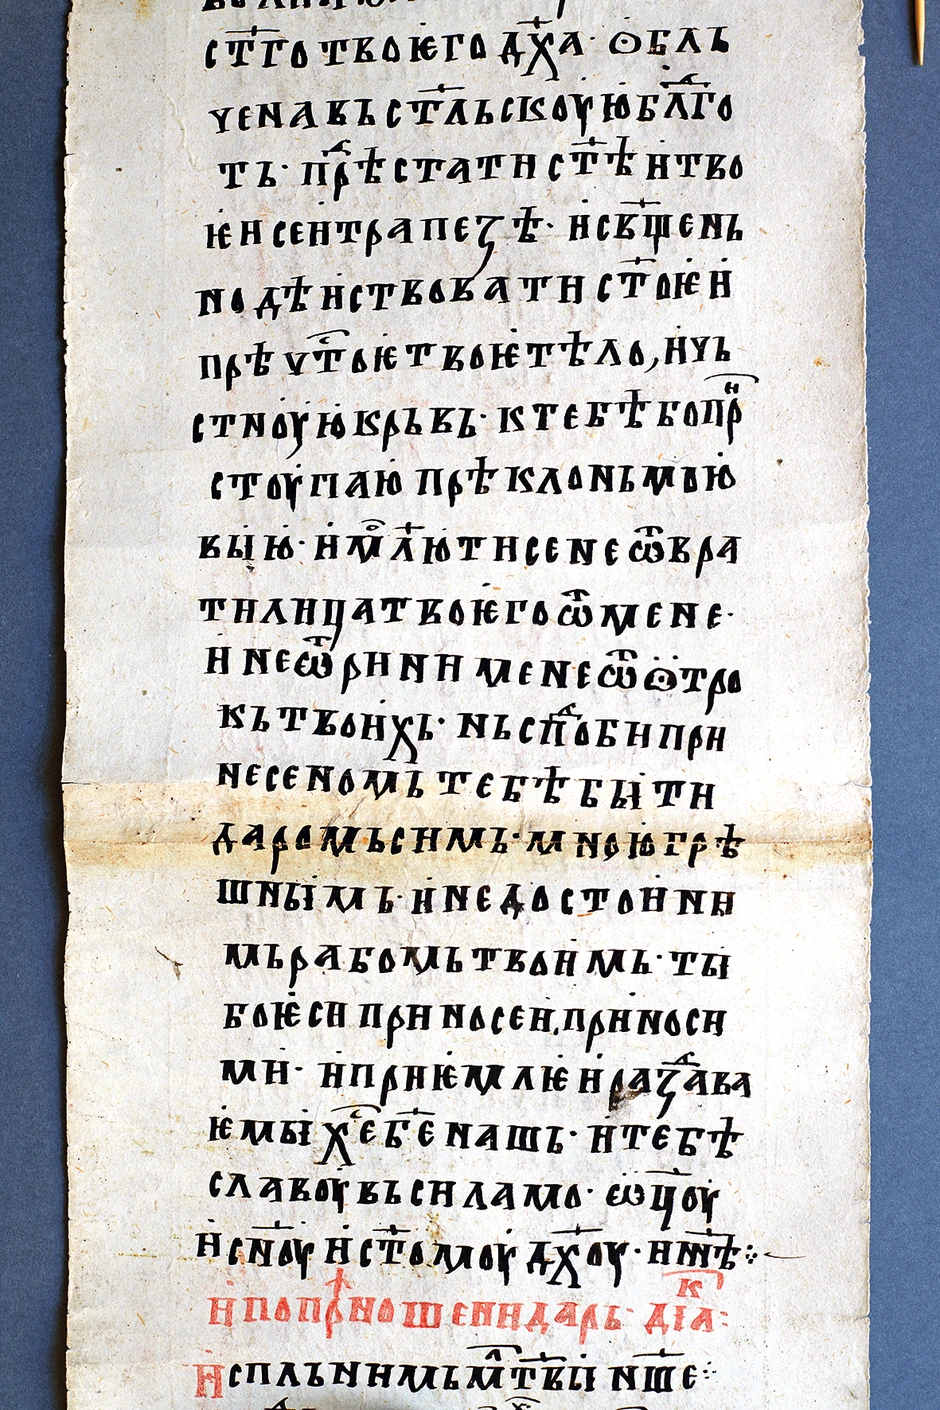 ст҃го твоѥго дх҃а· ѻблъ
чена въ ст҃льскоую бл҃го
ть· прⷣѣстати ст҃ѣи тво
ѥи сеи трапезѣ· и св҃щень
нодѣиствовати ст҃оѥ и
прѣчⷭ҇тоѥ твоѥ тѣло, и чь
стноую крьвь· к тебѣ бо прⷩ
стоупаю прѣклонь мою
выю· и мⷪ҇лю ти се не ѿвра
ти лица твоѥго ѿ мене·
и не ѿрини мене ѿ ѻтро
кь твоихь· нь спⷣоби при
несеномь тебѣ быти
даромь симь· мною грѣ
шнымь· и недостоини
мь рабомь твоимь· ты
бо ѥси приносеи, приноси
ми· и приѥмлѥи раздⷣава
ѥмы хⷭ҇е бе҃ нашь· и тебѣ
славоу вьсиламо· ѡц҃оу
и сн҃оу и ст҃омоу дх҃оу· и нн҃ѣ
и по прⷩношени дарь· дⷦ҇іа
исплънимь млⷭ҇твы нш҃е